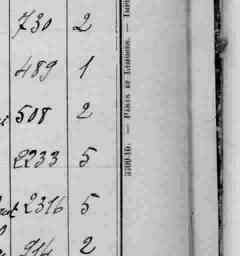 730 2
489 1
508 2
2233 5
2316 5
914 2
5399-10. — PARIS ET LIMOGES. — IMP